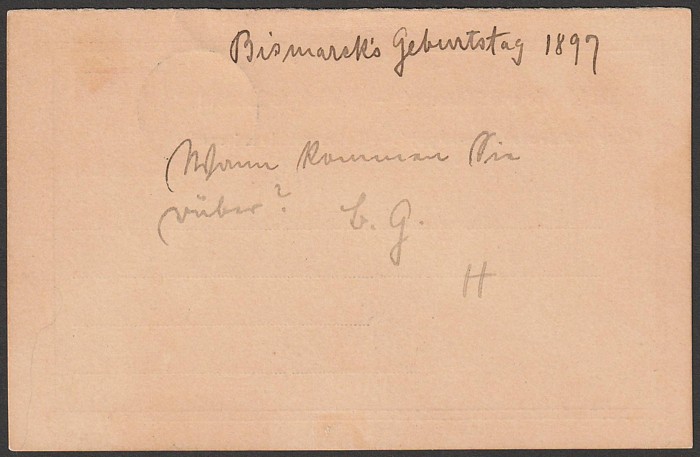 Bismarck's Geburtstag 1897
Wann kommen Sie
rüber? b. G.
H